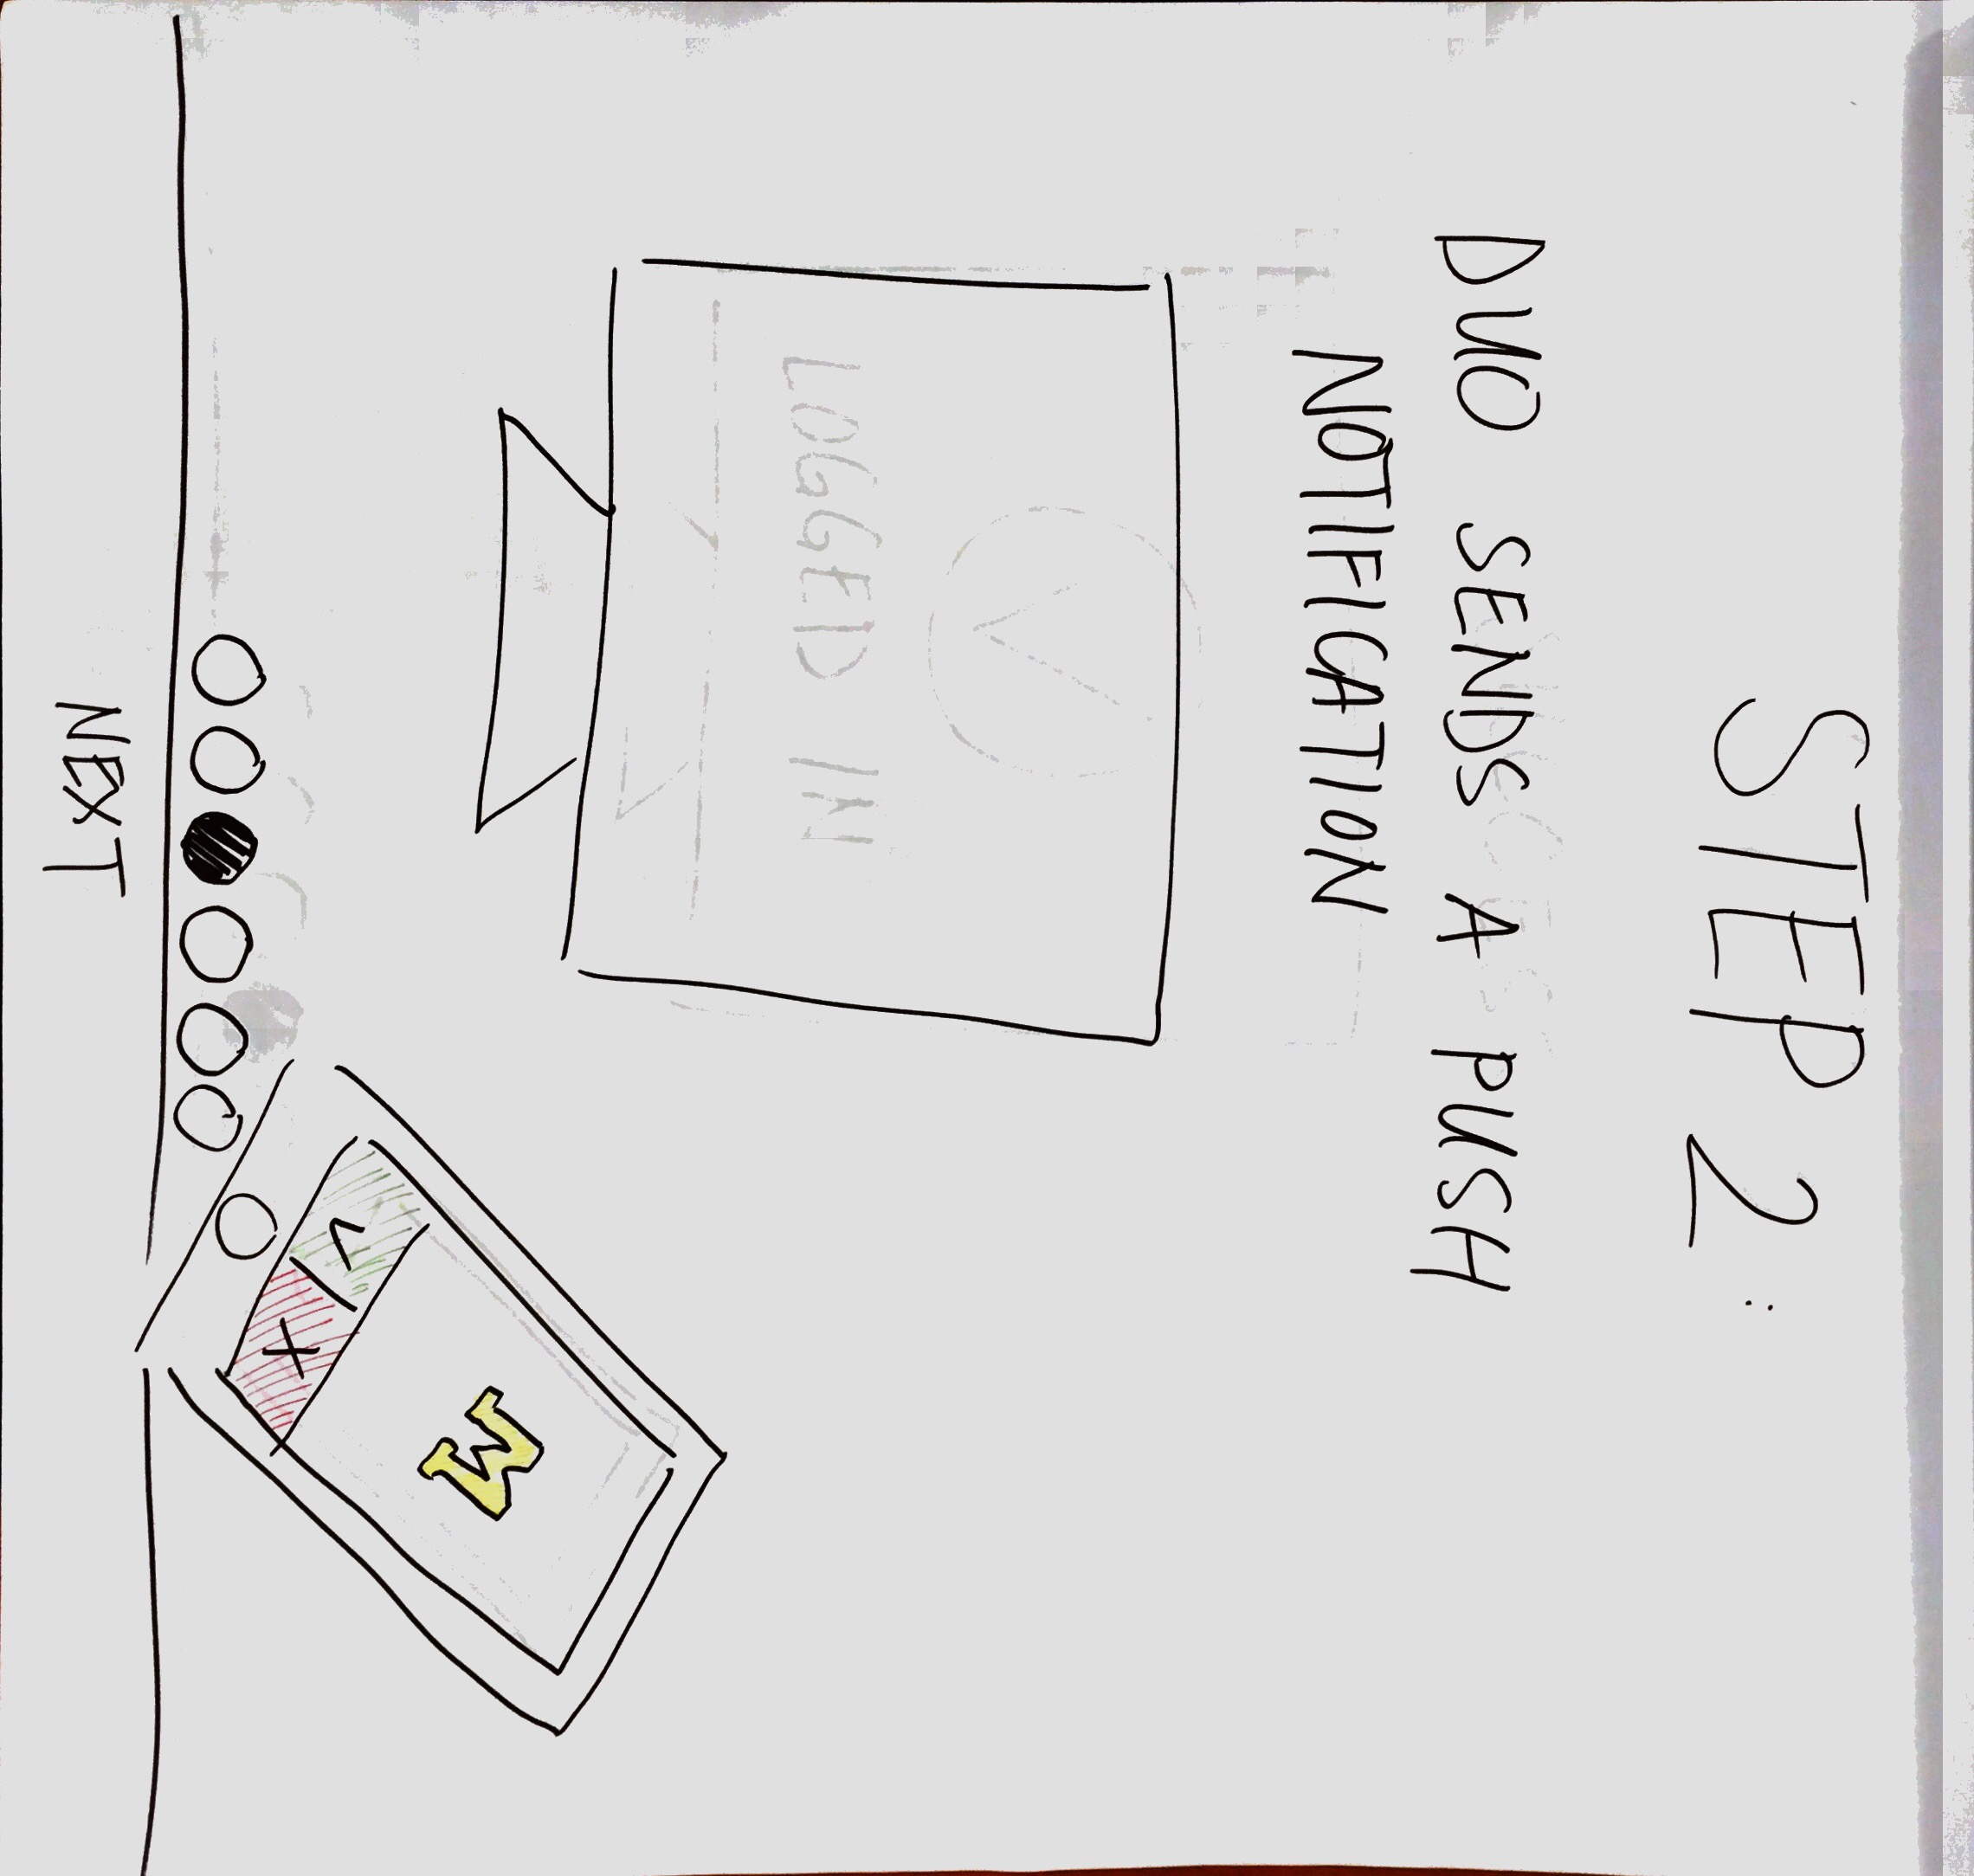 STEP 2:
DUO SENDS A PUSH
NOTIFICATION
LOGGED IN
M
X
NEXT